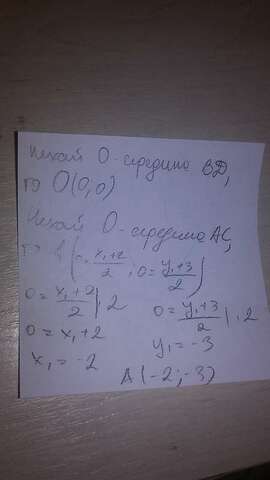 Нехай O - середина BD,
то O(0,0)
Нехай O - середина AC,
то (0 = x₁+2/2; 0 = y₁+3/2)
0 = x₁+2/2 |·2 0 = y₁+3/2 |·2
0 = x₁+2 y₁ = -3
x₁ = -2
A(-2; -3)